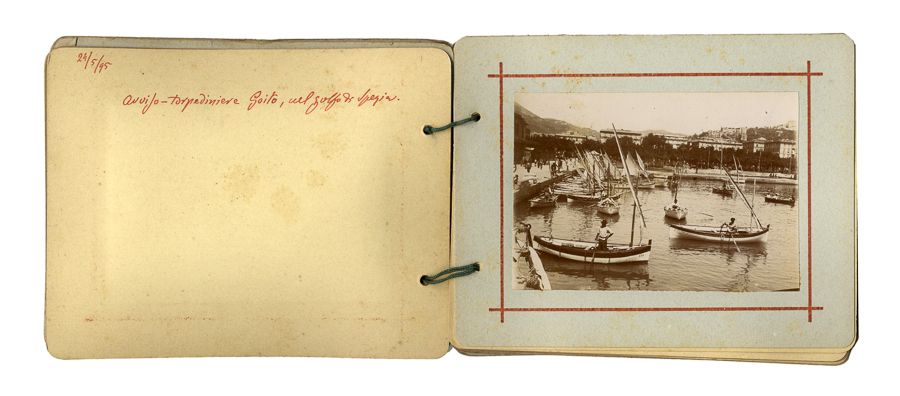 24/5/95
Avviso-torpediniere Goito, nel golfo di Spezia.